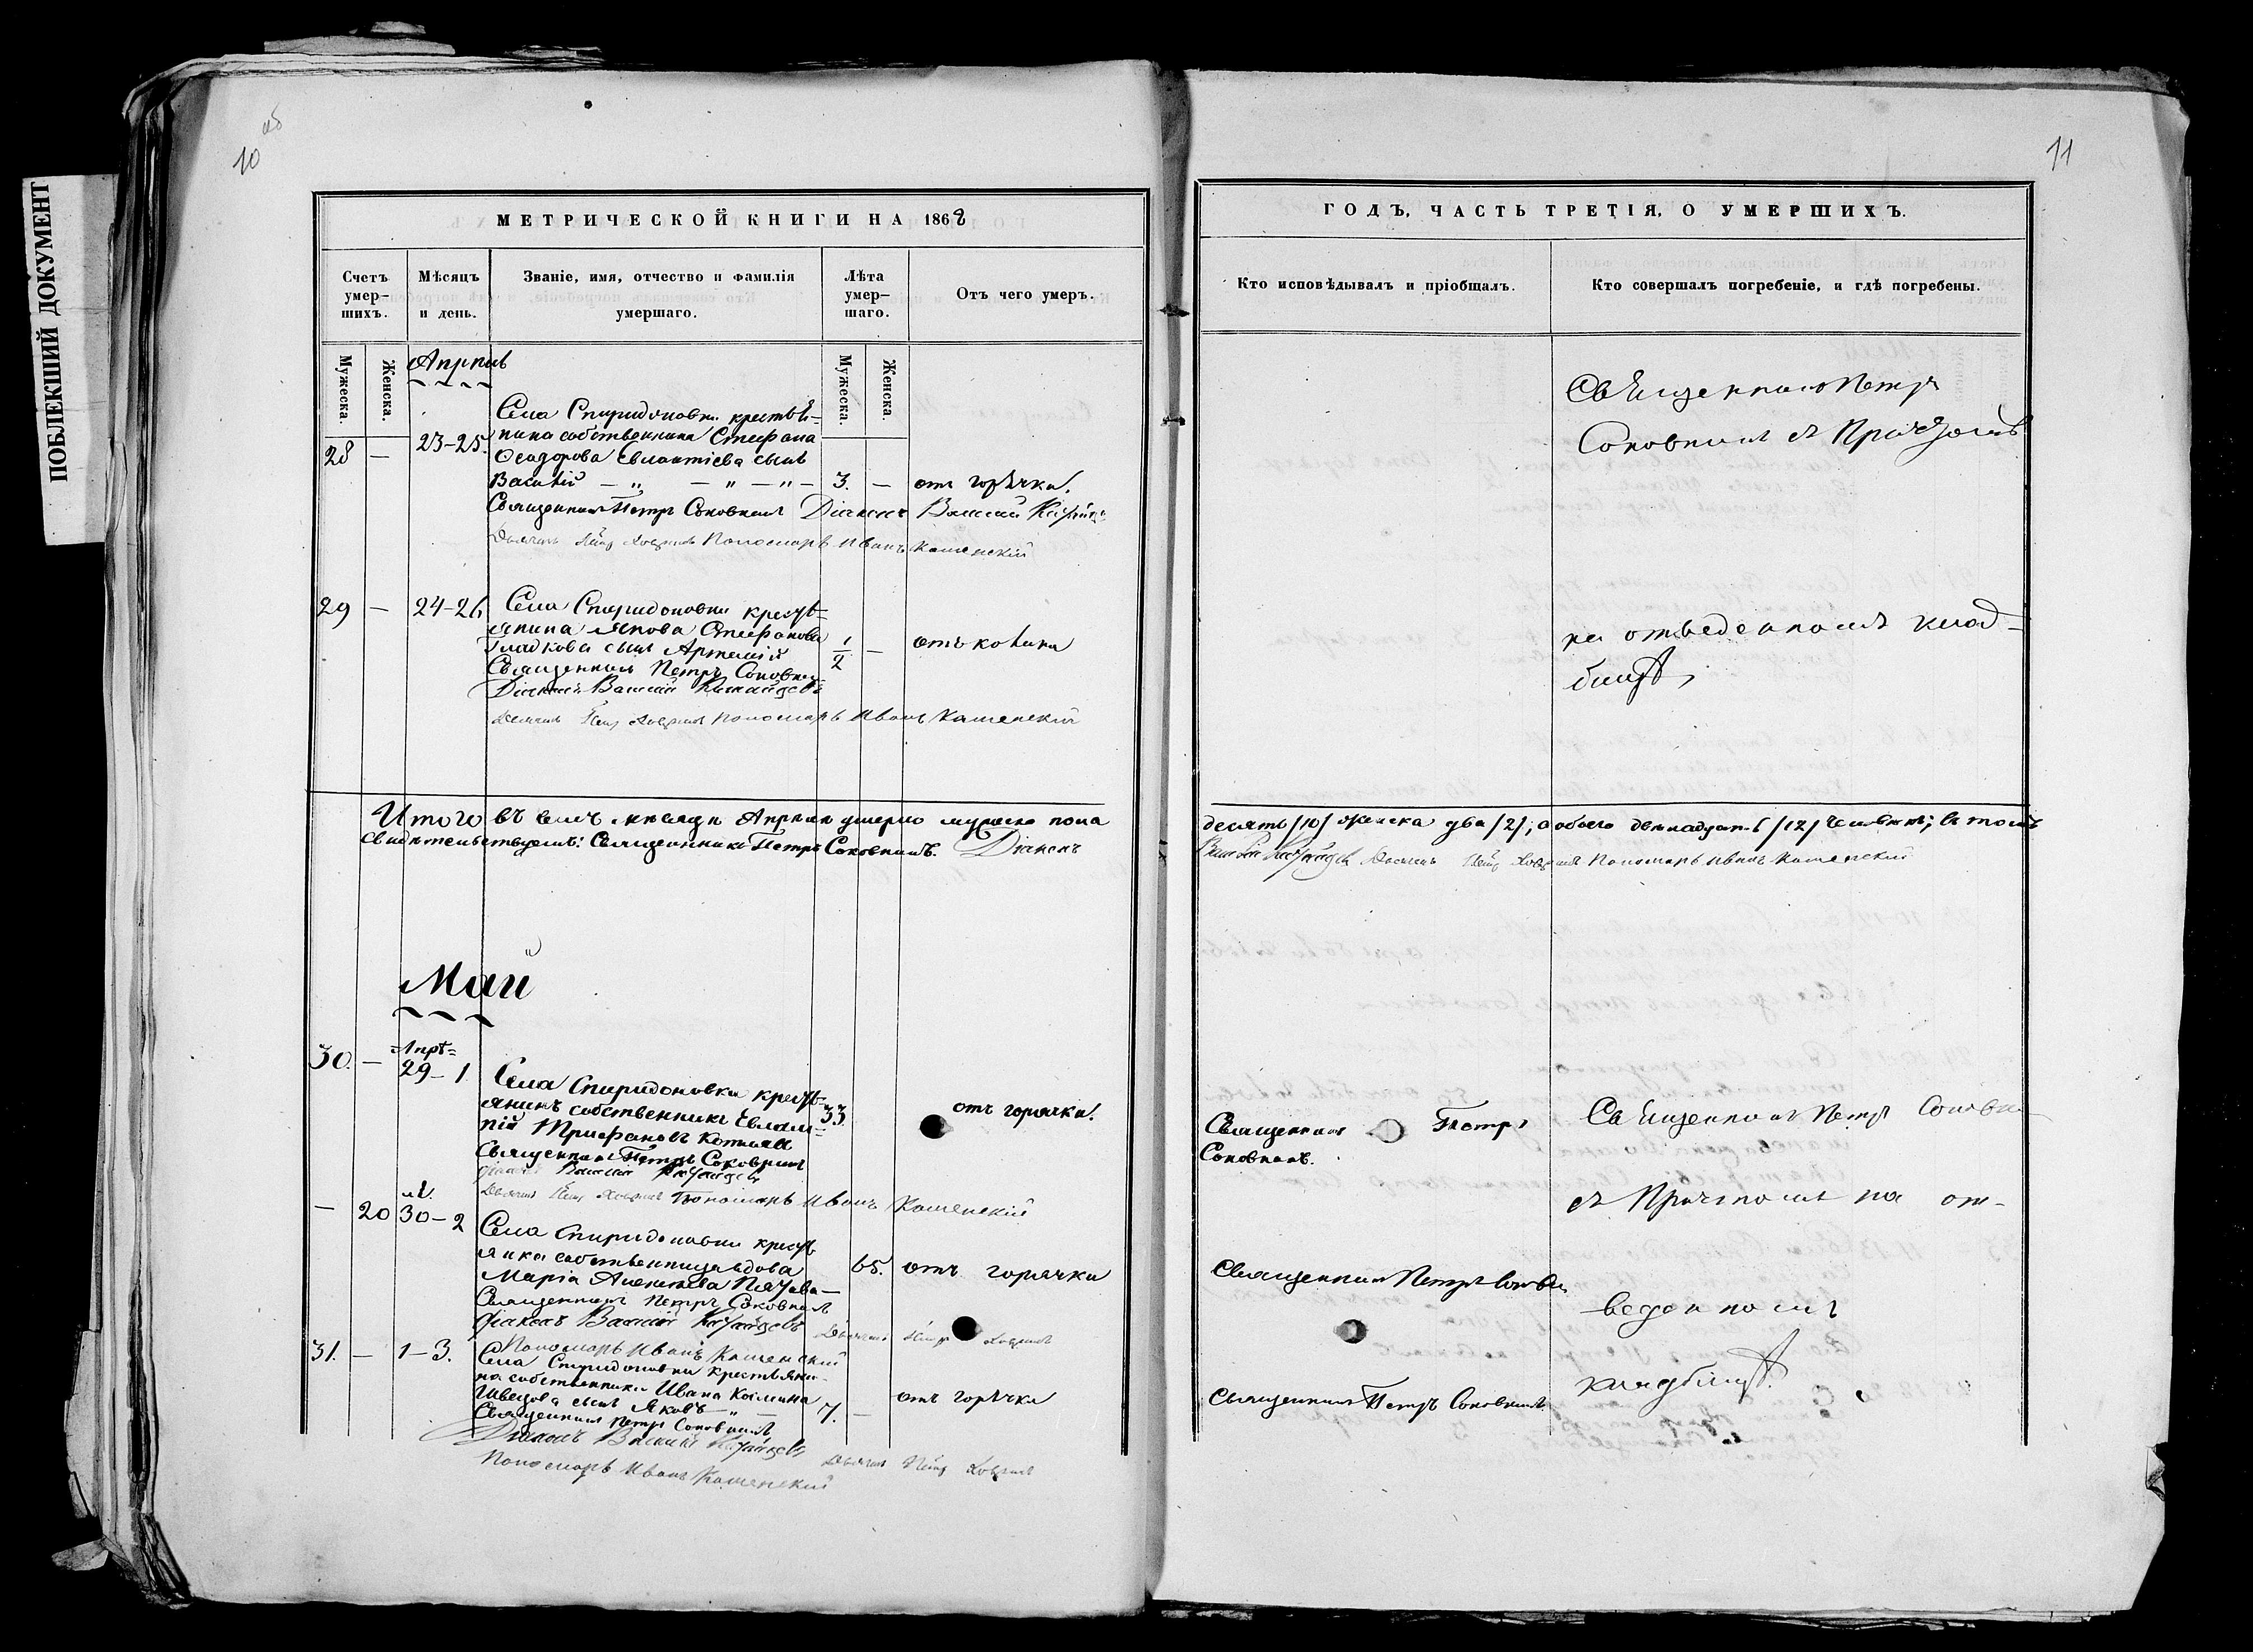 ПОБЛЕКШИЙ ДОКУМЕНТ
10 об
МЕТРИЧЕСКОЙ КНИГИ НА 1868
Счетъ умер-шихъ.
Мѣсяцъ и день.
Званіе, имя, отчество и фамилія умершаго.
Лѣта умер-шаго.
Отъ чего умеръ.
Мужеска. Женска.
Мужеска. Женска.
Апрѣль
28 — 23-25.
Села Спиридоновки крестья-
нина собственника Стефана
Ѳеодорова Евлантіева сынъ
Василій — „ — „ — „ — 3. — отъ горячки.
Священникъ Петръ Соковнинъ Діаконъ Василій
Дьячекъ Петр Пономарь Иванъ Каменскій
29 — 24-26
Села Спиридоновки кресть-
янина Якова Стефанова
Гладкова сынъ Артемій 1/2 — отъ колики
Священникъ Петръ Соковнин
Діаконъ Василій
Дьячекъ Петр Пономарь Иванъ Каменскій
Итого въ семъ мѣсяцѣ Апрѣлѣ умерло мужеска пола
свидѣтельствуемъ: Священникъ Петръ Соковнинъ. Діаконъ
Май
30. — Апрѣ=
29-1
Села Спиридоновки кресть-
янинъ собственникъ Евлам-
пій Трифановъ 33. отъ горячки.
Священникъ Петръ Соковнин
Діаконъ Василій
Дьячекъ Петр Пономарь Иванъ Каменскій
— 20 30-2
Села Спиридоновки кресть
янка собственница вдова
Марія Алексѣева 65. отъ горячки
Священникъ Петръ Соковнинъ
Діаконъ Василій Дьячекъ Петр
Пономарь Иванъ Каменскій
31. — 1-3.
Села Спиридоновки крестьяни-
на собственника Ивана Козмина
Шведова сынъ Яковъ — „ — 7. — отъ горячки
Священникъ Петръ Соковнинъ
Діаконъ Василій
Дьячекъ Петр
Пономарь Иванъ Каменскій
11
ГОДЪ, ЧАСТЬ ТРЕТІЯ, О УМЕРШИХЪ.
Кто исповѣдывалъ и пріобщалъ.
Кто совершалъ погребеніе, и гдѣ погребены.
Священникъ Петръ
Соковнинъ съ Причтомъ
на отведенномъ клад-
бищѣ
десять /10/ женска два /2/, а обоего двенадцать /12/ человѣкъ; въ томъ
Василій Дьячекъ Петр Пономарь Иванъ Каменскій
Священникъ Петръ
Соковнинъ.
Священникъ Петръ Соковни
съ Причтомъ на от-
Священникъ Петръ Соковн
веденномъ
кладбищѣ.
Священникъ Петръ Соковнинъ.